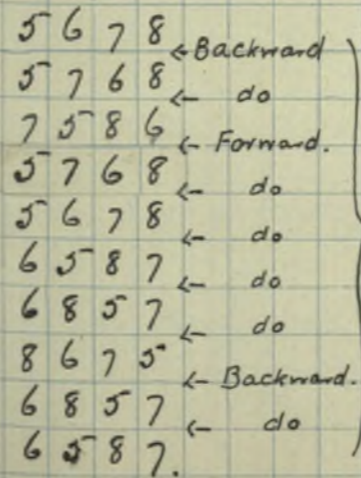 5 6 7 8
← Backward
5 7 6 8
← do
7 5 8 6
← Forward.
5 7 6 8
← do
5 6 7 8
← do
6 5 8 7
← do
6 8 5 7
← do
8 6 7 5
← Backward.
6 8 5 7
← do
6 5 8 7.